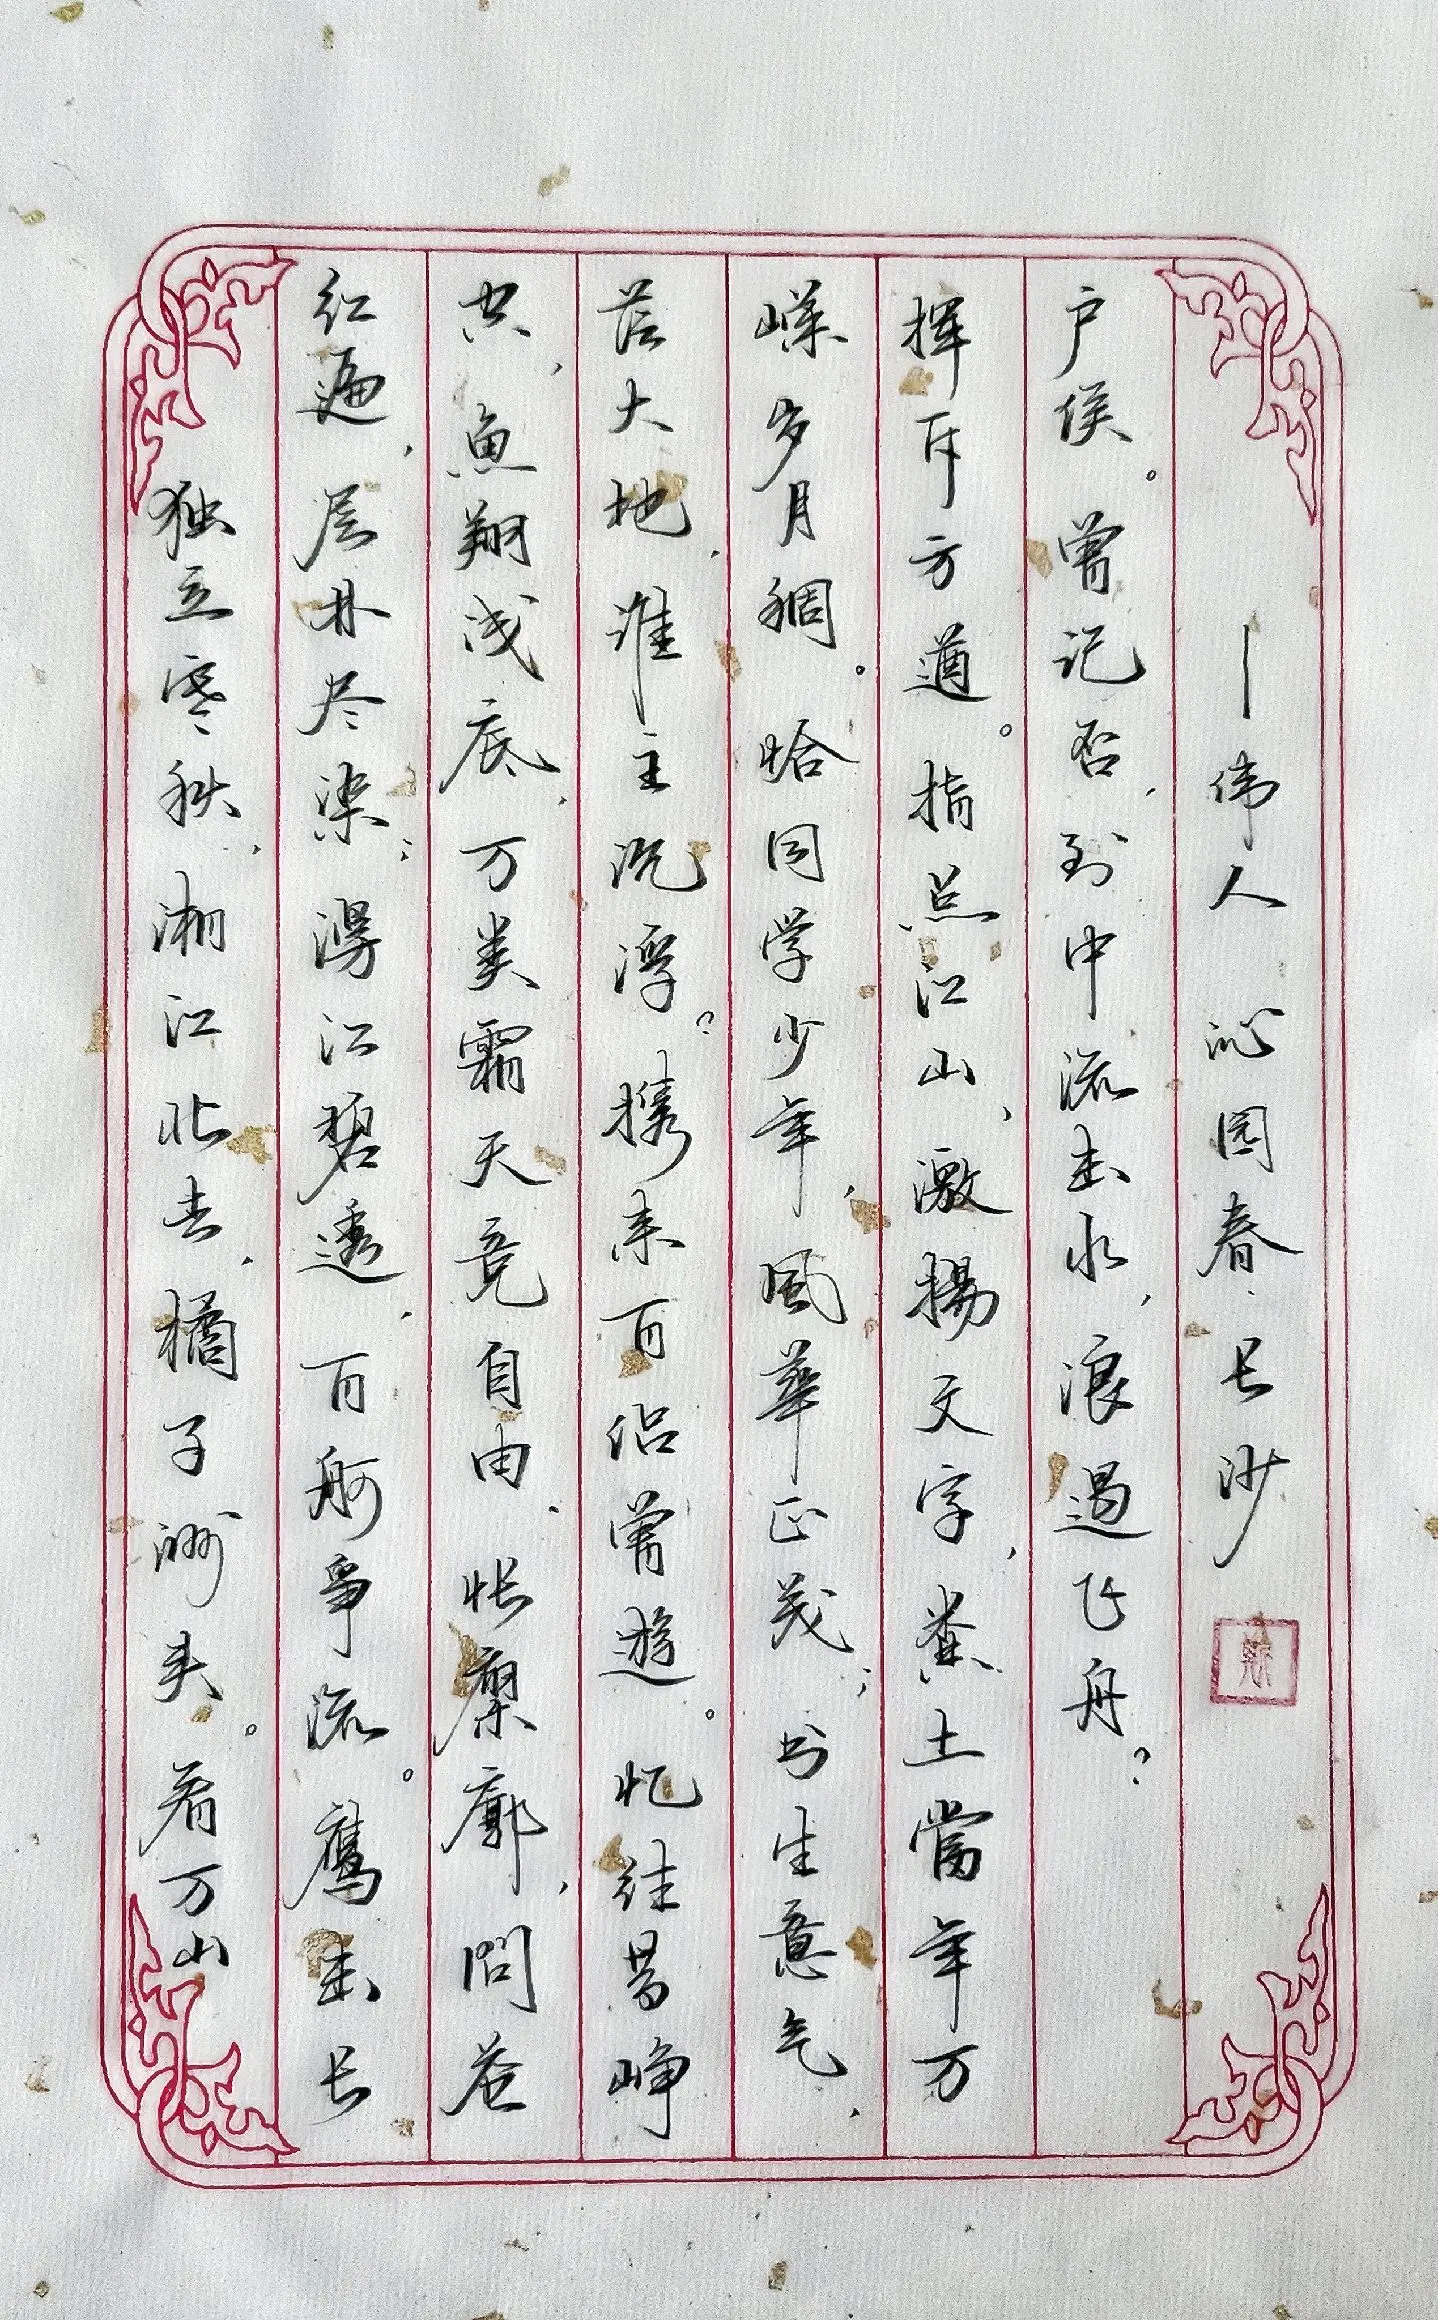 独立寒秋,湘江北去,橘子洲头。看万山
红遍,层林尽染;漫江碧透,百舸爭流。鹰击长
空,鱼翔浅底,万类霜天竞自由.怅寥廓,問苍
茫大地,谁主沉浮?携来百侣曾遊。忆往昔峥
嵘岁月稠。恰同学少年,風華正茂;书生意气,
挥斥方遒。指点江山,激揚文字,粪土當年万
户侯。曾记否,到中流击水,浪遏飞舟?
—伟人 沁园春·长沙